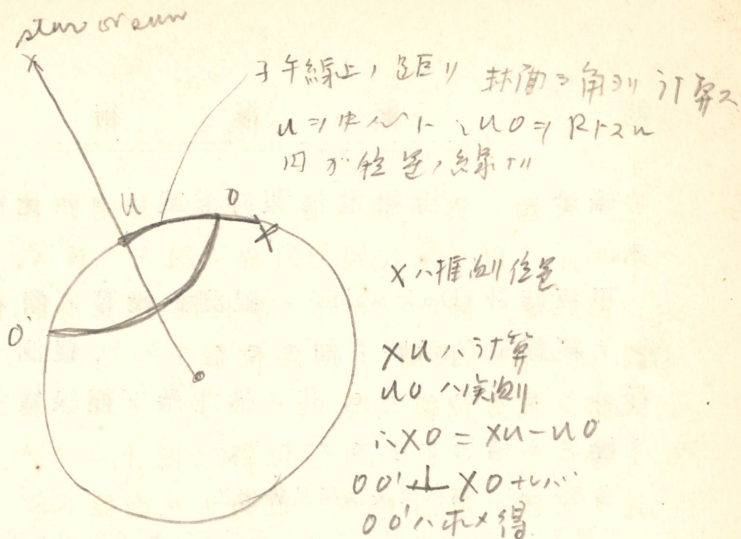 star or sun
子午線上ノ距リ 球面三角ヨリ計算ス
uヲ中心トシuOヲRトスル
円ガ位置ノ線ナリ
U
O
X
O'
Xハ推測位置
XUハ計算
UOハ実測
∴XO = XU−UO
OO'⊥XOナレバ
OO'ハ求メ得